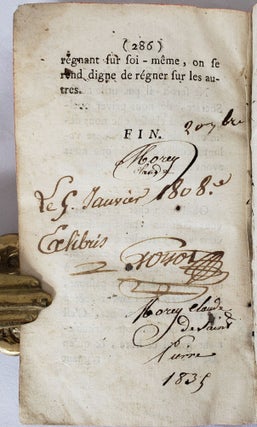 (286)
régnant sur soi-même, on se
rend digne de régner sur les au-
tres.
FIN.
Morey
Claude
Le 5. Janvier 1808.
Exlibris
Morey Claude
de Saint
Pierre
1835